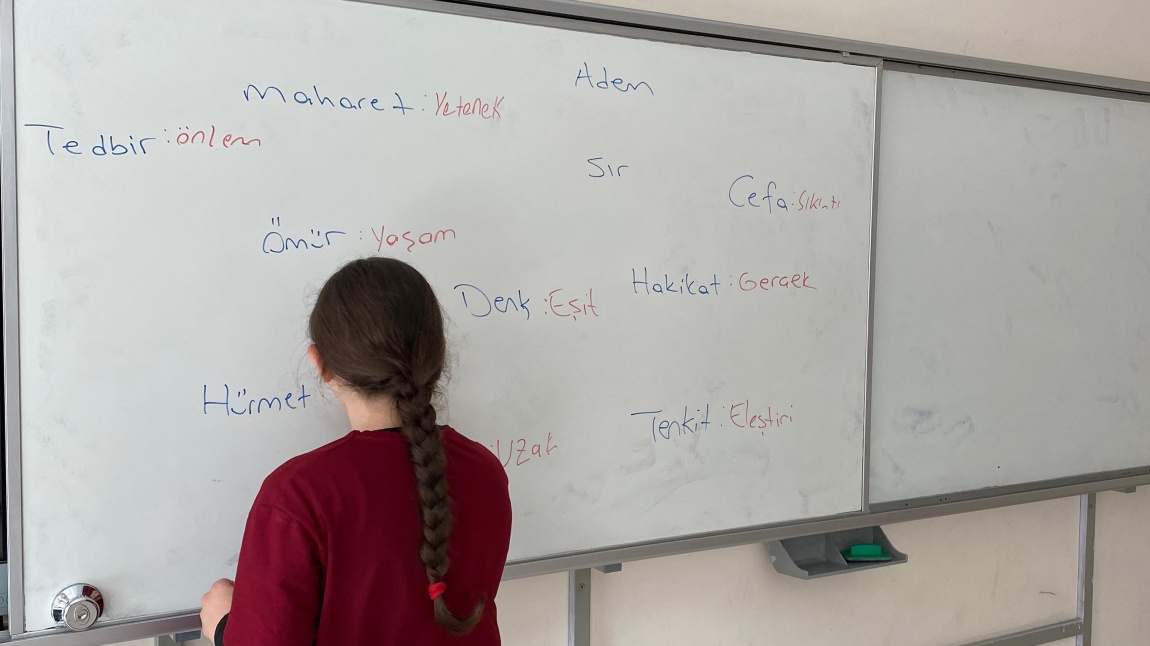 Adem
Maharet : Yetenek
Tedbir : önlem
Sır
Cefa : Sıkıntı
Ömür : Yaşam
Hakikat : Gerçek
Denk : Eşit
Hürmet
Tenkit : Eleştiri
: Uzak